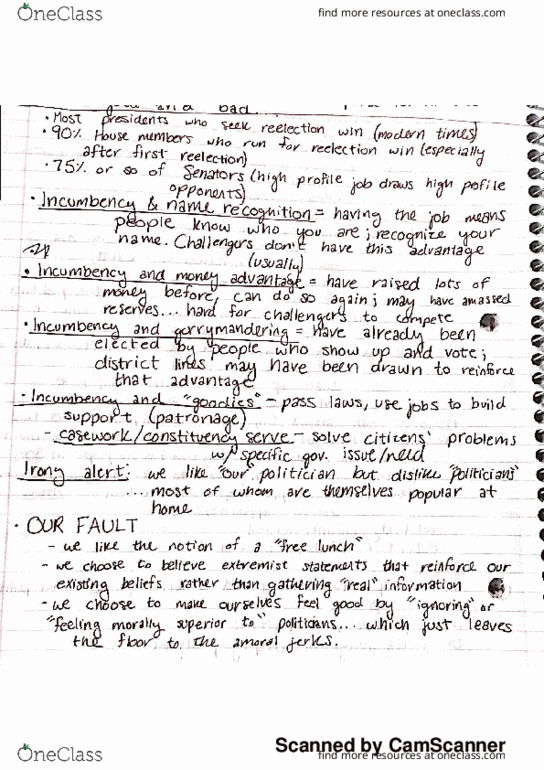 OneClass
find more resources at oneclass.com
good and a bad.
• Most presidents who seek reelection win (modern times)
• 90% House members who run for reelection win (especially
after first reelection)
• 75% or so of Senators (high profile job draws high pofile
opponents)
• Incumbency & name recognition = having the job means
people know who you are; recognize your
name. Challengers don't have this advantage
(usually)
• Incumbency and money advantage = have raised lots of
money before, can do so again; may have amassed
reserves... hard for challengers to compete
• Incumbency and gerrymandering = have already been
elected by people who show up and vote;
district lines may have been drawn to reinforce
that advantage
• Incumbency and "goodies" - pass laws, use jobs to build
support (patronage)
- casework/constituency serve - solve citizens' problems
w/ specific gov. issue/need
Irony alert: we like "our" politician but dislike "politicians"
...most of whom are themselves popular at
home
• OUR FAULT
- we like the notion of a "free lunch"
- we choose to believe extremist statements that reinforce our
existing beliefs rather than gathering "real" information
- we choose to make ourselves feel good by "ignoring" or
"feeling morally superior to" politicians... which just leaves
the floor to the amoral jerks.
Scanned by CamScanner
OneClass
find more resources at oneclass.com